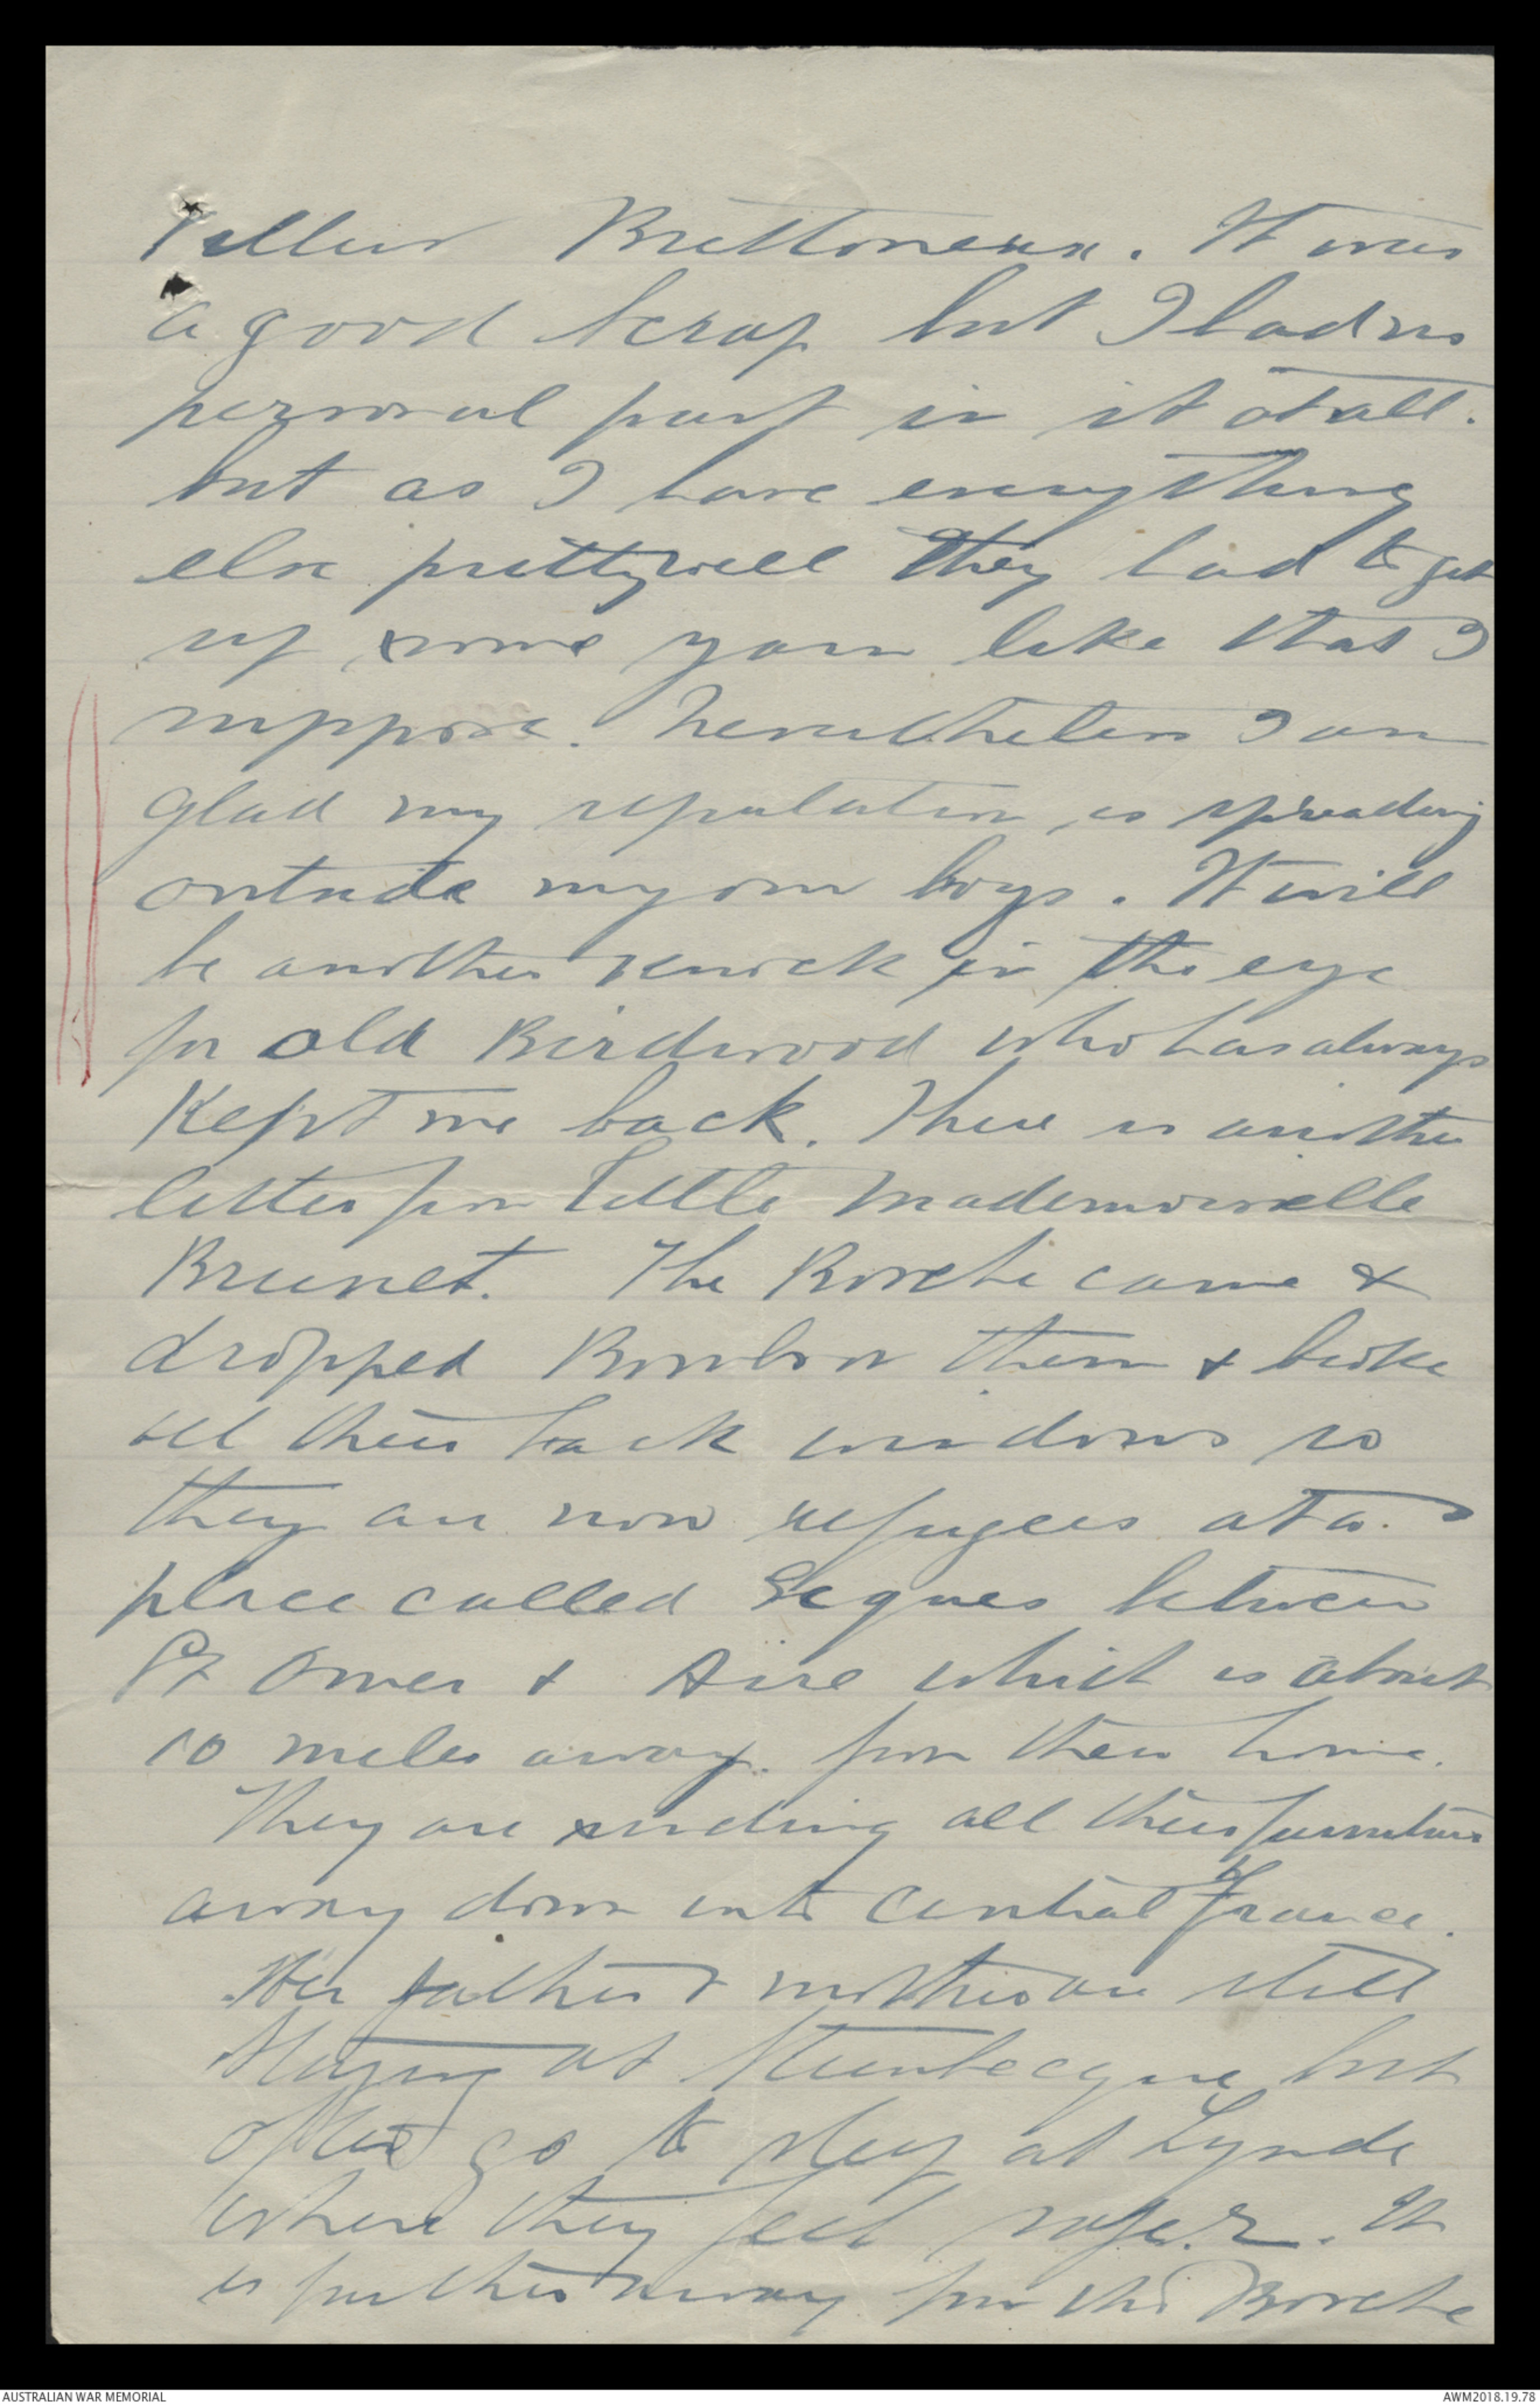 Villers Brettoneux. It was
a good scrap but I had no
personal part in it at all.
but as I have everything
else pretty well they had to get
up some yarn like that I
suppose. Nevertheless I am
glad my reputation is spreading
outside my own boys. It will
be another knock in the eye
for old Birdwood who has always
kept me back. There is another
letter from little Mademoiselle
Brunet. The Bosche came &
dropped Bombs on them & broke
all their back windows so
they are now refugees at a
place called Ecques between
St Omer & Aire which is about
10 miles away from their home.
They are sending all their furniture
away down into Central France.
Her father & mother are still
staying at Steenbecque but
often go to sleep at Lynde
where they feel safer. It
is further away from the Bosche
AUSTRALIAN WAR MEMORIAL
AWM2018.19.78